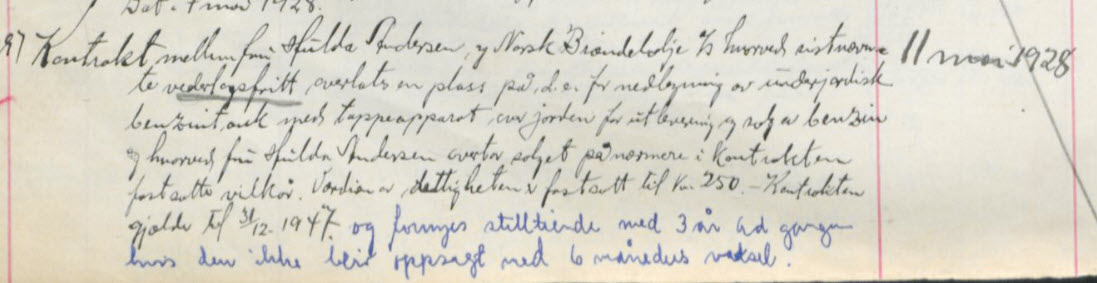 Dat. 7 mai 1928.
9) Kontrakt mellem fru Hulda Andersen og Norsk Brændselolje A/s hvorved sistnævn- 11 mai 1928
te vederlagsfritt overlates en plass på d. e. for nedlegning av underjordisk
benzintank med tappeapparat over jorden for utlevering og salg av benzin
og hvorved fru Hulda Andersen overtar salget på nærmere i Kontrakten
fastsatte vilkår. Verdien av rettigheten er fastsatt til kr. 250.- Kontrakten
gjelder til 31/12-1947. og fornyes stilltiende med 3 år ad gangen
hvis den ikke blir oppsagt med 6 måneders varsel.